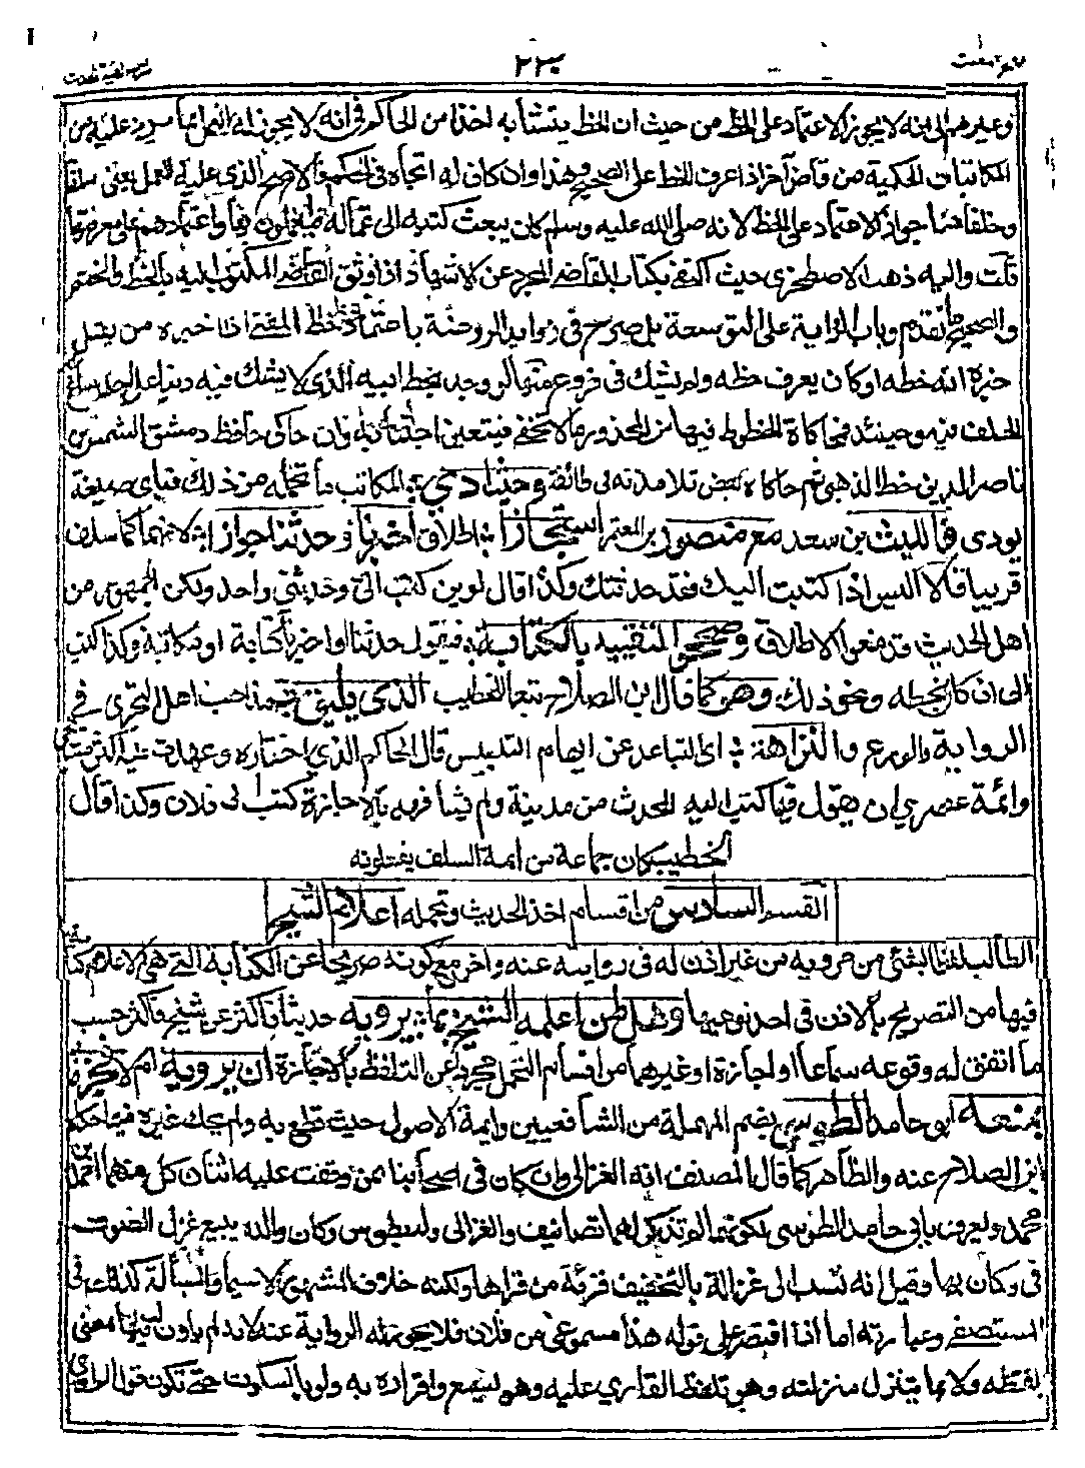 ٢٢٠
وغيرهم الى انه لا يجوز الاعتماد على الخط من حيث ان الخط يتشابه اخذا من الحاكم فى انه لا يجوز له العمل بما يرد عليه من
المكاتبات الحكمية من قاض آخر اذا عرف الخط على الصحيح وهذا وان كان له اتجاه فى الحكم فالاصح الذى عليه العمل يعنى سلفا
وخلفا هنا جواز الاعتماد على الخط لانه صلى الله عليه وسلم كان يبعث كتبه الى عماله فيعملون بها واعتمادهم على معرفتها
قلت واليه ذهب الاصطخرى حيث اكتفى بكتاب القاضى المجرد عن الاشهاد اذا وثق القاضى المكتوب اليه بالخط والختم
والصحيح ما تقدم وباب الرواية على التوسعة بل صرح فى زوايد الروضة باعتماد خط المفتى اذا اخبره من يقبل
خبره انه خطه او كان يعرف خطه ولم يشك فى فروعه منها لو وجد بخط ابيه الذى لا يشك فيه دينا على احد ساغ
الحلف فيه وحينئذ فمحاكاة الخطوط فيها من المحذور ما لا يخفى فيتعين اجتنابه وان حاكى حافظ دمشق الشمس بن
ناصر الدين خط الذهبى ثم حاكاه بعض تلامذته فى طائفة وحيث ادى المكاتب ما تحمله من ذلك فباى صيغة
يودى فالليث بن سعد مع منصور بن المعتمر استجازا اطلاق اخبرنا وحدثنا جوازا لانهما كما سلف
قريبا قالا اليس اذا كتبت اليك فقد حدثتك وكذا قال لوين كتب الى وحدثنى واحد ولكن الجمهور من
اهل الحديث قد منعوا الاطلاق وصححوا التقييد بالكتابة فيقول حدثنا او اخبرنا كتابة او مكاتبة وكذا كتب
الى ان كان بخطه ونحو ذلك وهو كما قال ابن الصلاح تبعا للخطيب الذى يليق بمذاهب اهل التحرى فى
الرواية والورع والنزاهة اى التباعد عن ايهام التلبيس قال الحاكم الذى اختاره وعهدت عليه اكثر مشايخى
وائمة عصرى ان يقول فيما كتب اليه المحدث من مدينة ولم يشافهه بالاجازة كتب الى فلان وكذا قال
الخطيب كان جماعة من ائمة السلف يفعلونه
القسم السادس من اقسام اخذ الحديث وتحمله اعلام الشيخ
الطالب لفظا بشئ من مرويه من غير اذن له فى روايته عنه واخر مع كونه صريحا عن الكتابة التى هى كالاعلام لما
فيها من التصريح بالاذن فى احد نوعيها وهل لمن اعلمه الشيخ بما يرويه حديثا فاكثر عن شيخ فاكثر حسب
ما اتفق له وقوعه سماعا او اجازة او غيرهما من اقسام التحمل مجردا عن التلفظ بالاجازة ان يرويه ام لا فجزم
بمنعه ابو حامد الطوسى بضم المهملة من الشافعيين وايمة الاصول حيث قطع به ولم يحك غيره فيما حكاه
ابن الصلاح عنه والظاهر كما قال المصنف انه الغزالى وان كان فى اصحابنا ممن وقفت عليه اثنان كل منهما احمد بن
محمد ويعرف بابى حامد الطوسى لكونهما لم تذكر لهما تصانيف والغزالى ولد بطوس وكان والده يبيع غزل الصوف
فى دكان بها وقيل انه نسب الى غزالة بالتخفيف قرية من قراها ولكنه خلاف المشهور لا سيما والمسألة كذلك فى
المستصفى وعبارته اما اذا اقتصر على قوله هذا مسموعى من فلان فلا يجوز له الرواية عنه لانه لم ياذن فيها معنى
بلفظه ولا بما يتنزل منزلته وهو تلفظ القارى عليه وهو يسمع واقراره به ولو بالسكوت حتى تكون قول الراوى